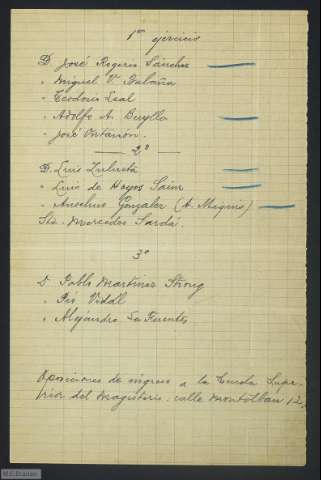 1er ejercicio
D. José Rogerio Sánchez
" Miguel V.
" Teodosio Leal
" Adolfo A. Buylla
" José Ontañón.
2º
D. Luis Zulueta
" Luis de Hoyos Sáinz
" Anselmo González (A. Miquis)
Sta. Mercedes Sardá.
3º
D. Pablo Martínez Strong
" Pío Vidal
" Alejandro La Fuente
Oposiciones de ingreso a la Escuela Supe-
rior del Magisterio. calle Montalbán 12,